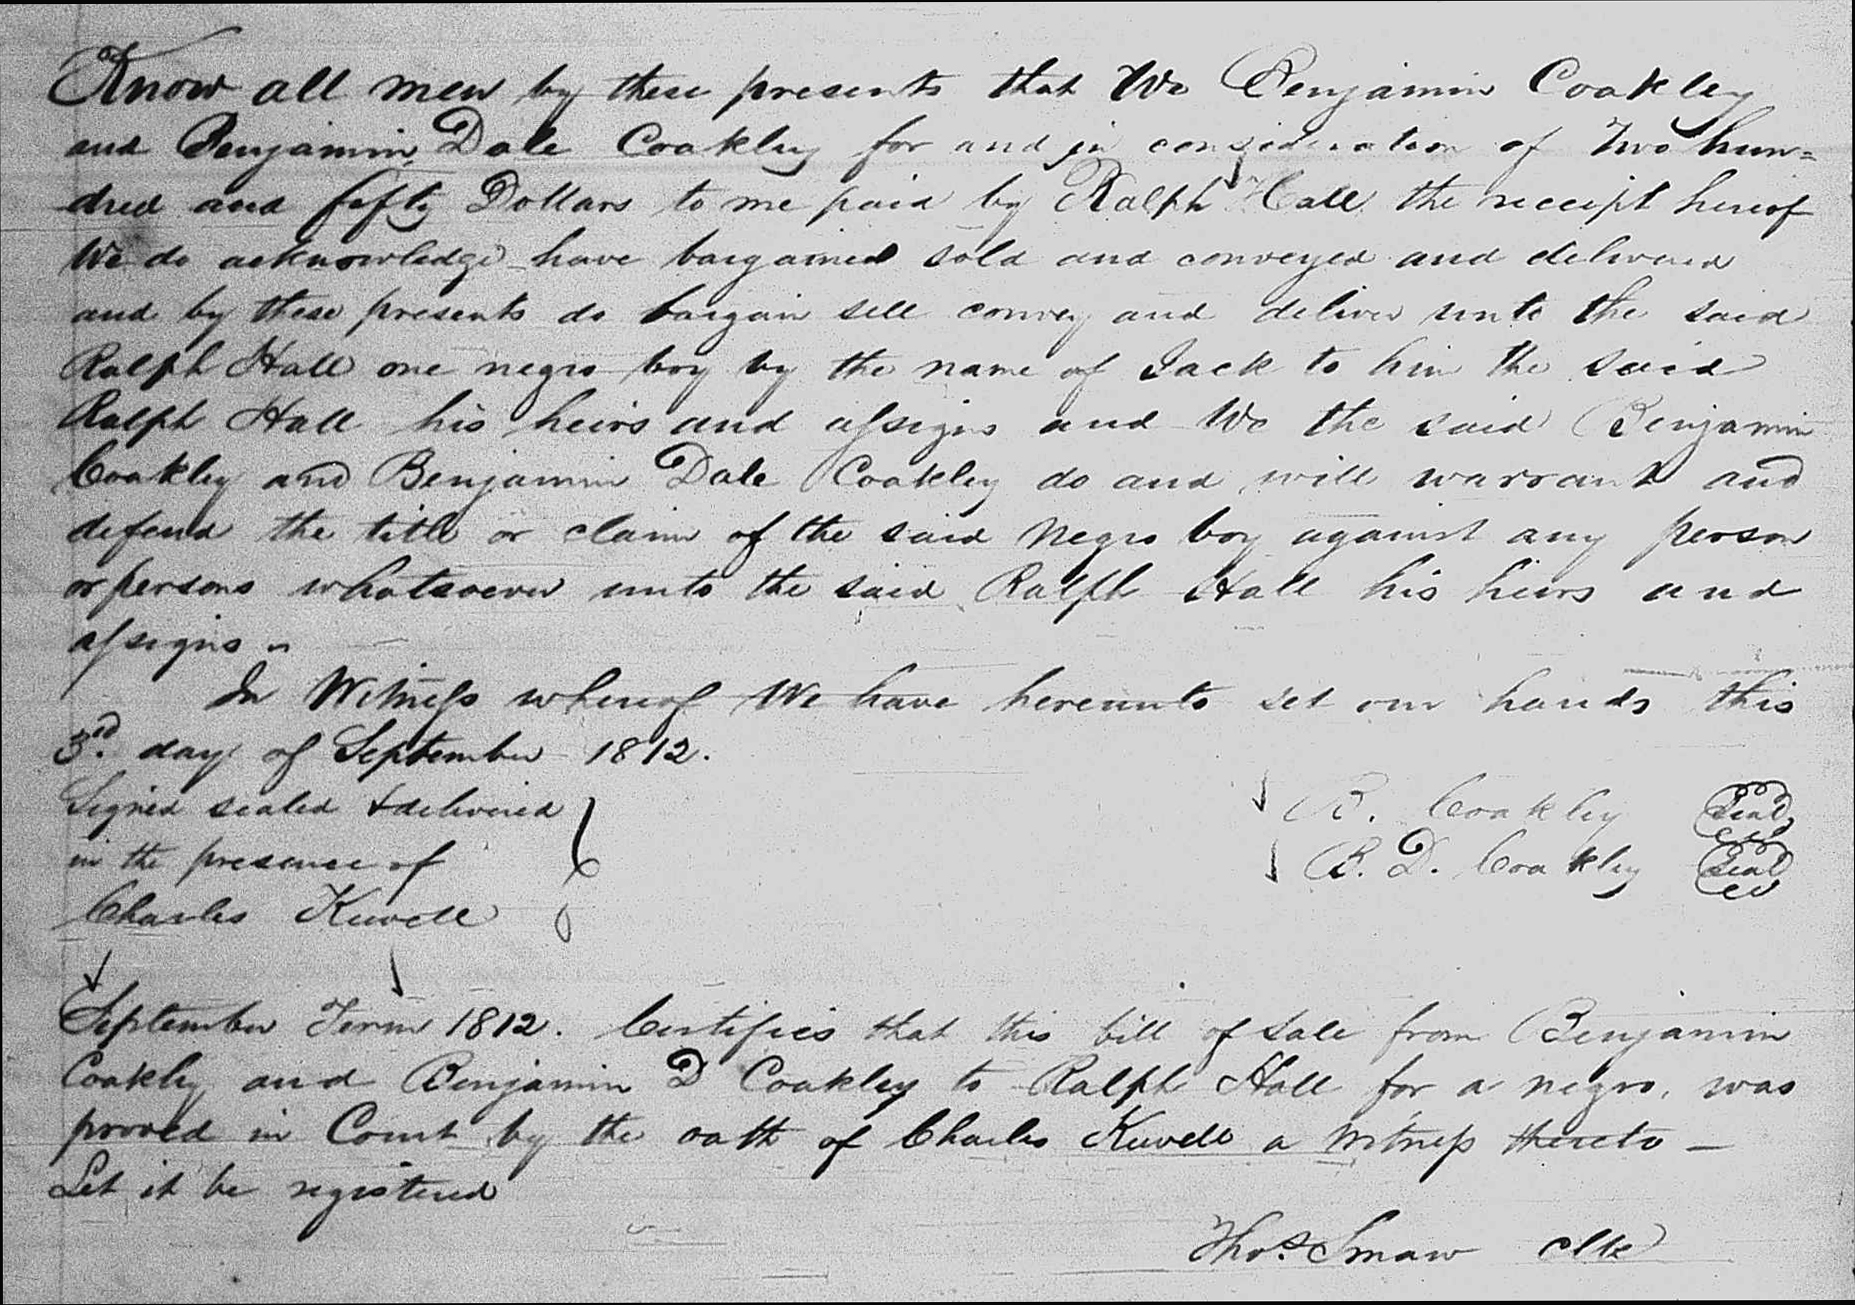 Know all men by these presents that We Benjamin Coakley
and Benjamin Dale Coakley for and in consideration of Two hun=
dred and fifty Dollars to me paid by Ralph Hall the receipt hereof
We do acknowledge have bargained sold and conveyed and delivered
and by these presents do bargain sell convey and deliver unto the said
Ralph Hall one negro boy by the name of Jack to him the said
Ralph Hall his heirs and assigns and We the said Benjamin
Coakley and Benjamin Dale Coakley do and will warrant and
defend the title or claim of the said Negro boy against any person
or persons whatsoever unto the said Ralph Hall his heirs and
assigns
In Witness whereof We have hereunto set our hands this
3rd. day of September 1812.
Signed sealed & delivered
in the presence of
Charles
B. Coakley Seal
B. D. Coakley Seal
September Term 1812. Certifies that this bill of sale from Benjamin
Coakley and Benjamin D Coakley to Ralph Hall for a negro, was
proved in Court by the oath of Charles a Witness thereto —
Let it be registered
Thos. Smaw Clk